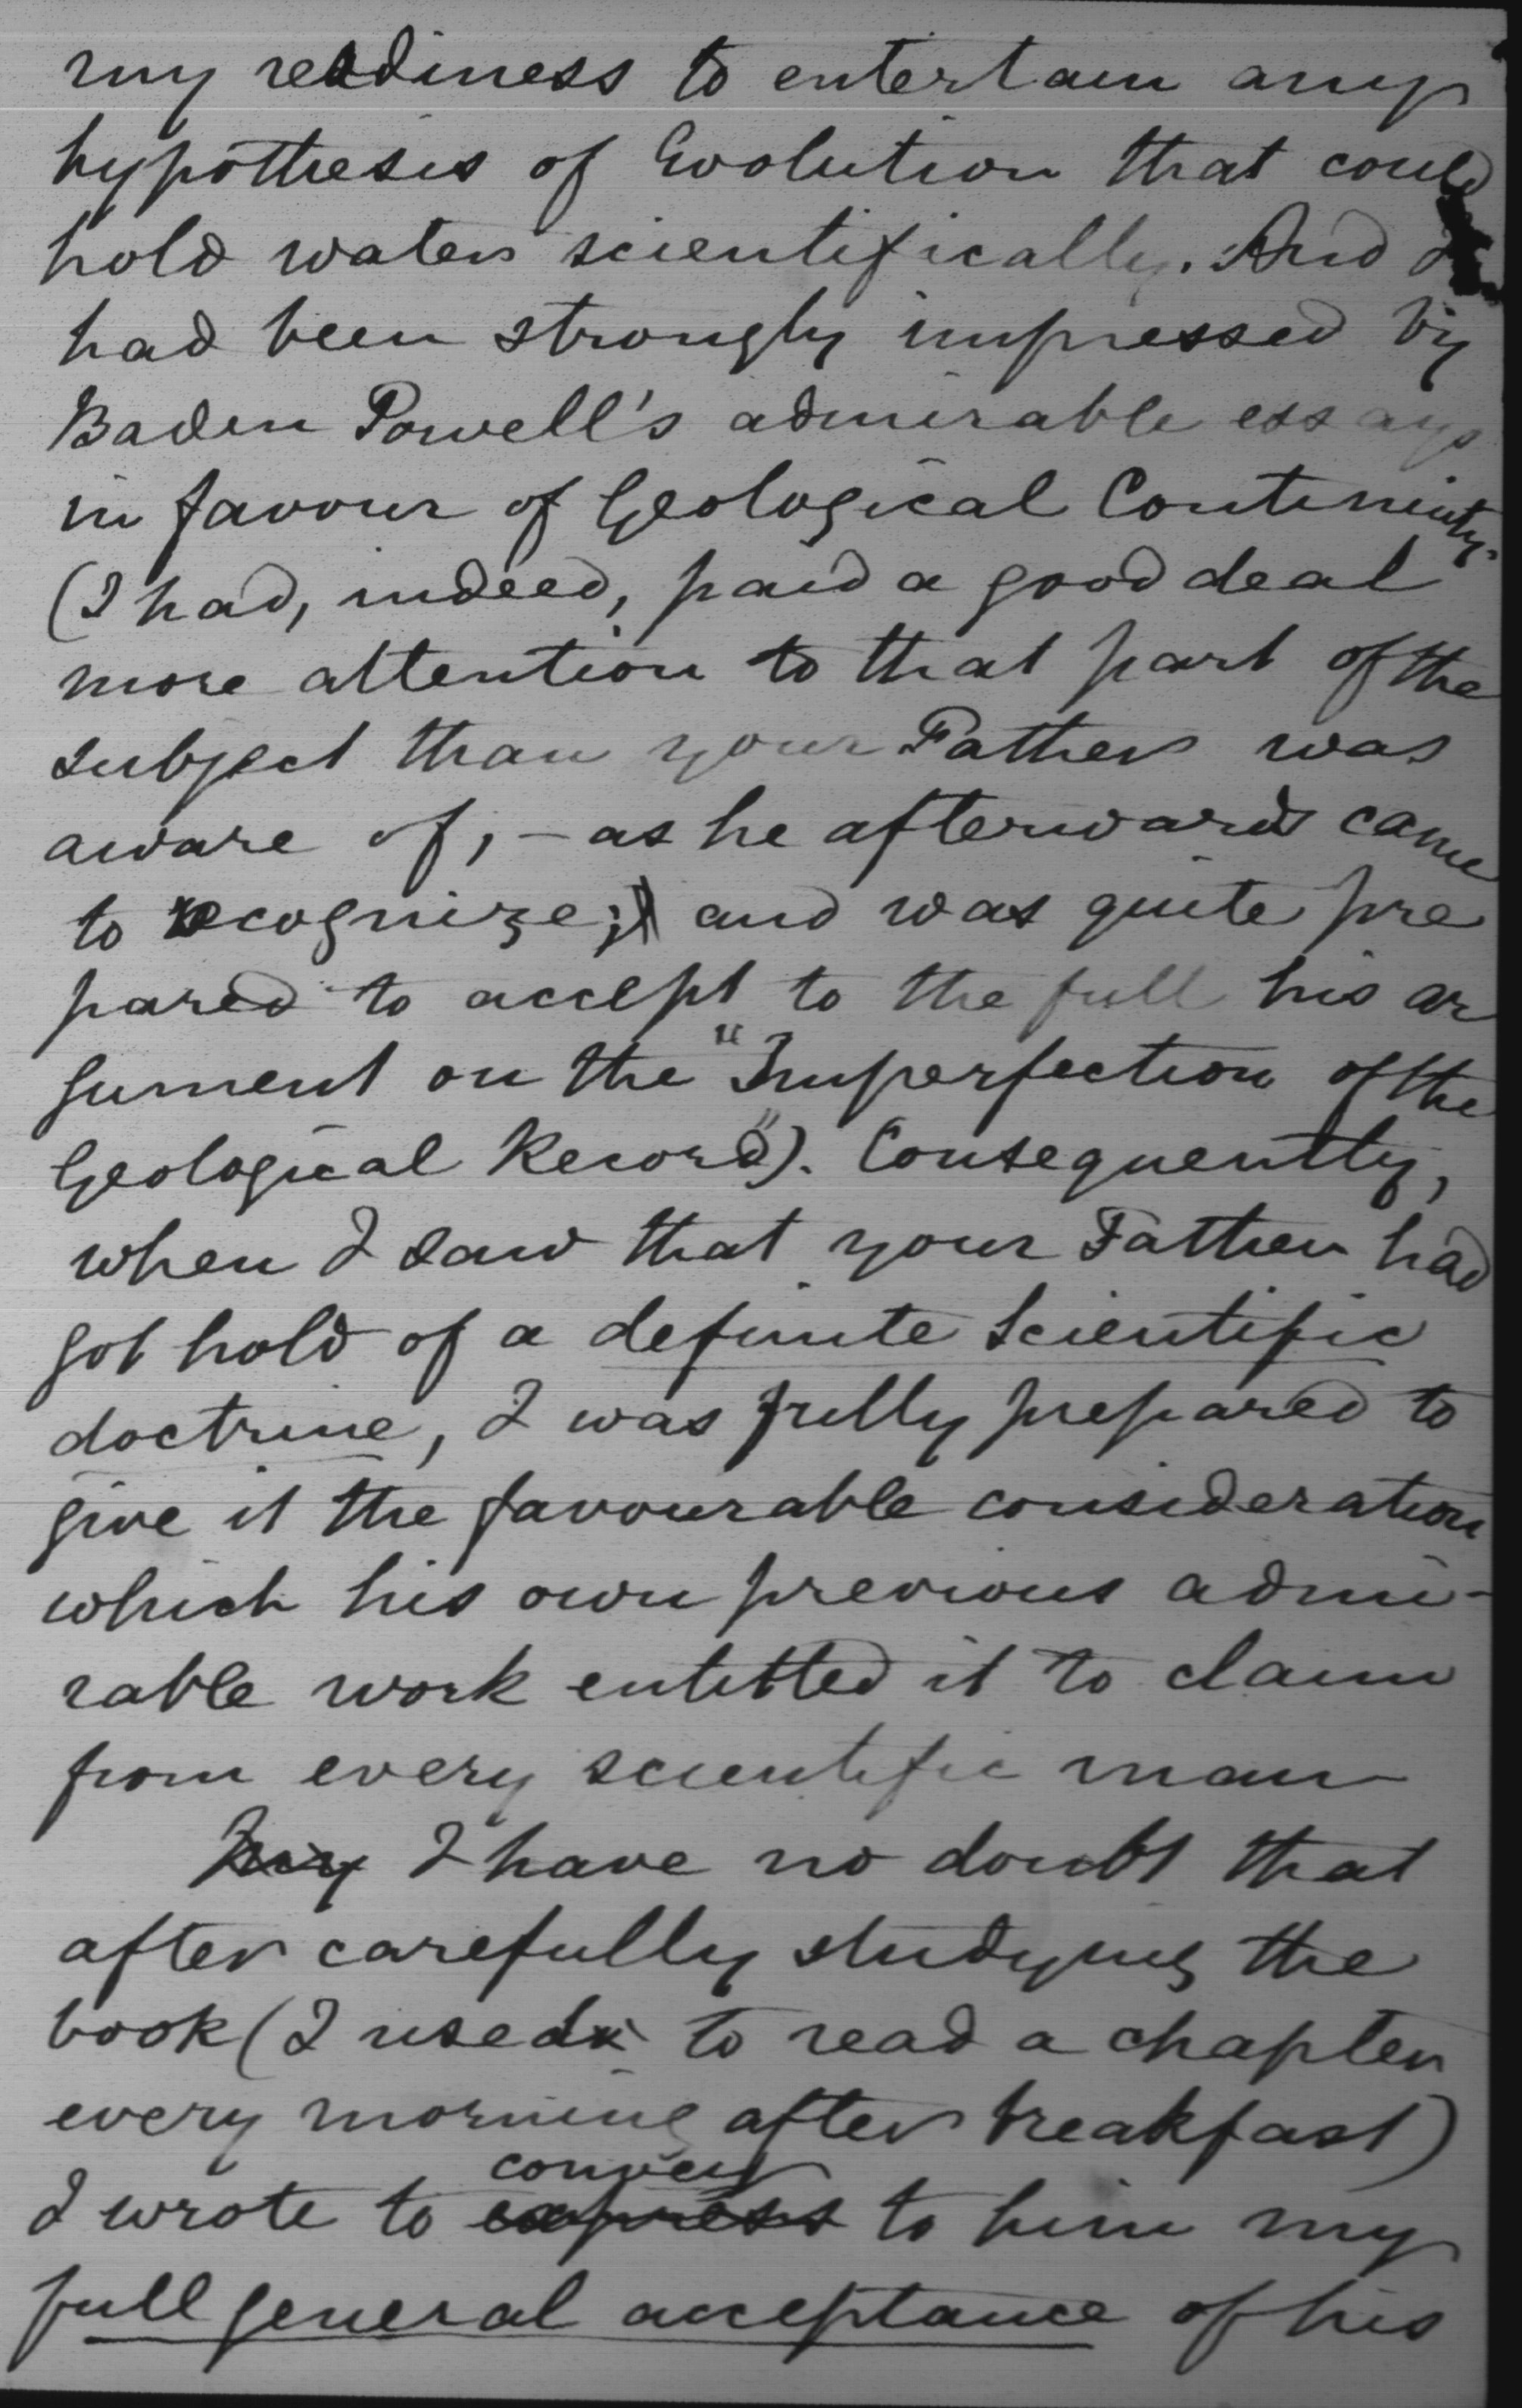 my readiness to entertain any
hypothesis of Evolution that could
hold water scientifically. And I
had been strongly impressed by
Baden Powell's admirable essays
in favour of Geological Continuity.
(I had, indeed, paid a good deal
more attention to that part of the
subject than your Father was
aware of, – as he afterwards came
to recognize; and was quite pre
pared to accept to the full his ar
gument on the "Imperfection of the
Geological Record"). Consequently,
when I saw that your Father had
got hold of a definite Scientific
doctrine, I was fully prepared to
give it the favourable consideration
which his own previous admi-
rable work entitled it to claim
from every scientific man
I have no doubt that
after carefully studying the
book (I used to read a chapter
every morning after breakfast)
convey
I wrote to express to him my
full general acceptance of his